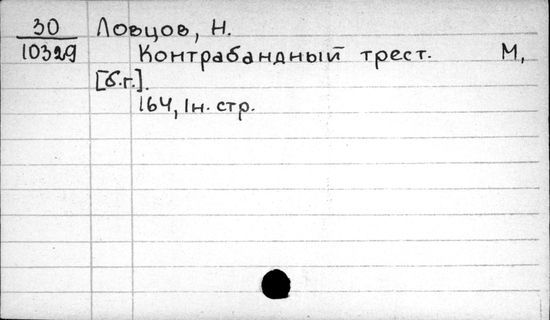 30 Ловцов, Н.
10329 Контрабандный трест. М,
[б.г.].
164, 1н. стр.